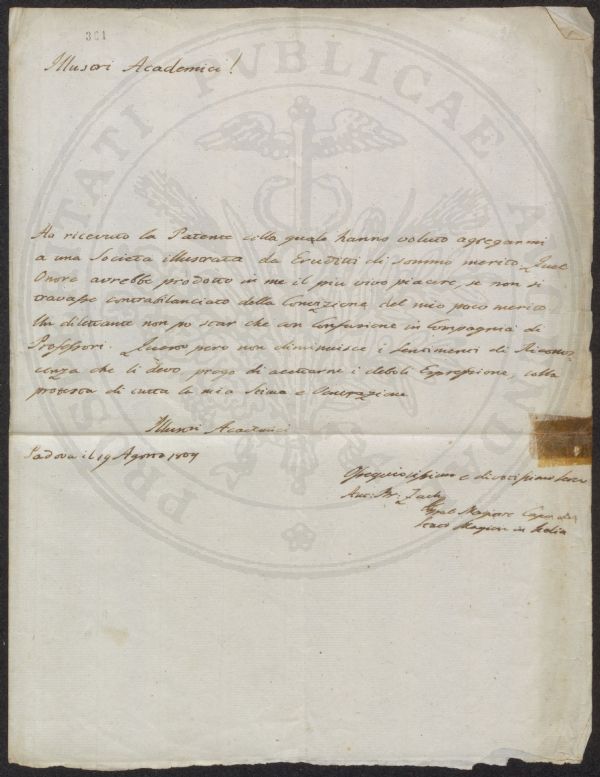 361
Illustri Academici!
Ho ricevuto la Patente colla quale hanno voluto agregarmi
a una Societa illustrata da Eruditti di sommo merito. Quel
Onore avrebbe prodotto in me il piu vivo piacere, se non si
travasse contrabilanciato della del mio poco merito
Un dilettante non po star che con Confusione in Compagnia di
Professori. Questo pero non diminuisce i Sentimenti di Ricono
cenza che li devo, prego di acettarne i deboli Expressione, colla
protesta di tutta la mia Stima e Venerazione
Illustri Academici
Padova il 19 Agosto 1807
Ossequiosissimo e divotissimo
Ant: Zach
Maggiore
Stato Maggiore in Italia